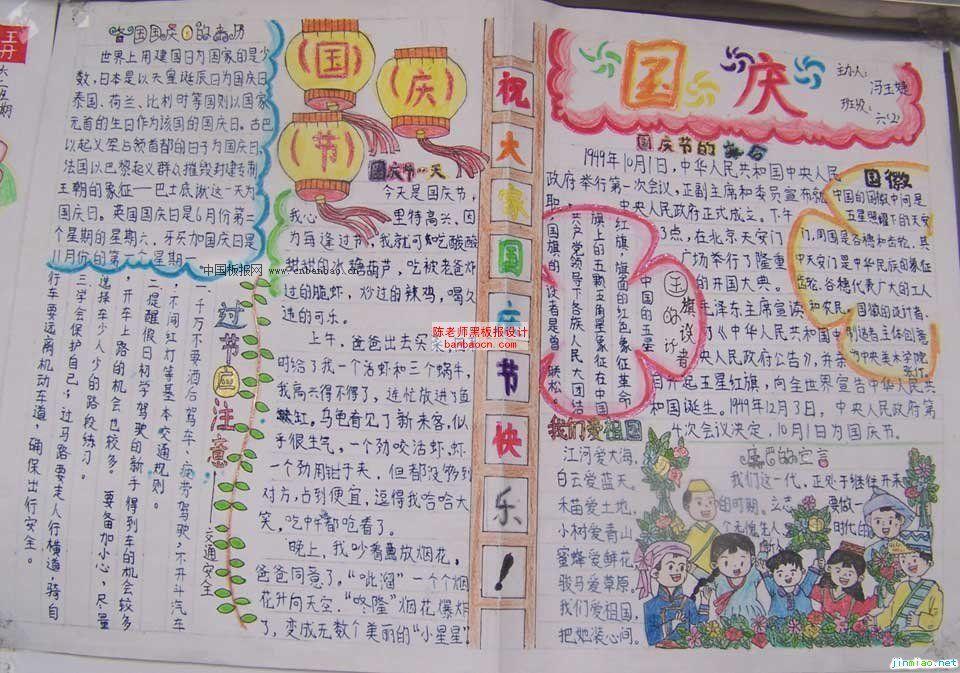 各国国庆日的来历
世界上用建国日为国家的是少
数,日本是以天皇诞辰日为国庆日。
泰国、荷兰、比利时等国则以国家
元首的生日作为该国的国庆日。古巴
以起义军占领首都的日子为国庆日
法国以巴黎起义群众摧毁封建制
王朝的象征——巴士底狱这一天为
国庆日。英国国庆日是6月份第二
个星期的星期六、牙买加国庆日是
月份的第一个星期一
中国板报网 www.cnbanbao.cn
过节应注意
交通安全
一、千万不要酒后驾车、疲劳驾驶,不开斗汽车
、不闯红灯等基本交通规则
二、提醒假日初学驾驶的新手得到车的机会较多
,开车上路的机会也较多,要备加小心,尽量
选择车少人少的路段练习。
三、学会保护自己,过马路要走人行横道,骑自
行车要远离机动车道,确保出行安全。
国庆节
国庆节一天
今天是国庆节,
我心里特高兴、因
为每逢过节,我就可以吃酸酸
甜甜的冰糖葫芦,吃被老爸炸
过的脆虾,炒过的辣鸡,喝久
违的可乐。
上午,爸爸出去买菜
时给了我一个活虾和三个蜗牛,
我高兴得不得了,连忙放进了鱼
缸。乌龟看见了新来客,似
乎很生气,一个劲咬活虾,虾
一个劲用钳子夹,但都没够到
对方,占到便宜,逗得我哈哈大
笑,吃午都呛看了。
晚上,我吵着要放烟花,
爸爸同意了。“呲溜”一个个烟
花升向天空.“咚隆”烟花爆炸
了,变成无数个美丽的“小星星”
祝大家国庆节快乐!
陈老师黑板报设计
banbaocn.com
国庆
主办人:冯玉婕
班级:六(2)
国庆节的
1949年10月1日,中华人民共和国中央人民
政府举行第一次会议,正副主席和委员宣布就
职,中央人民政府正式成立。下午
3点,在北京天安门
广场举行了隆重
的开国大典。
毛泽东主席宣读
了《中华人民共和国中
央人民政府公告》,并亲
升起五星红旗,向全世界宣告中华人民共
和国诞生。1949年12月3日,中央人民政府第
4次会议决定,10月1日为国庆节。
五的旗设计者
中国的五星
红旗,旗面的红色象征革命,
旗上的五颗五角星象征在中国
共产党领导下各族人民大团结
国旗的设计者是曾联松。
国徽
中国的国徽中间是
五星照耀下的天安
门,周围是谷穗和齿轮,其
中天安门是中华民族的象征
齿轮、谷穗代表广大的工人
和农民。国徽的设计者、
创造者主体创意
为中央美术学院
张仃。
我们爱祖国
江河爱大海,
白云爱蓝天。
禾苗爱土地,
小树爱青山
蜜蜂爱鲜花
骏马爱草原,
我们爱祖国,
把她装心间。
的宣言
我们这一代,正处于继往开来
的时期。立志要做一
个无愧于时代的人
jinmiao.net